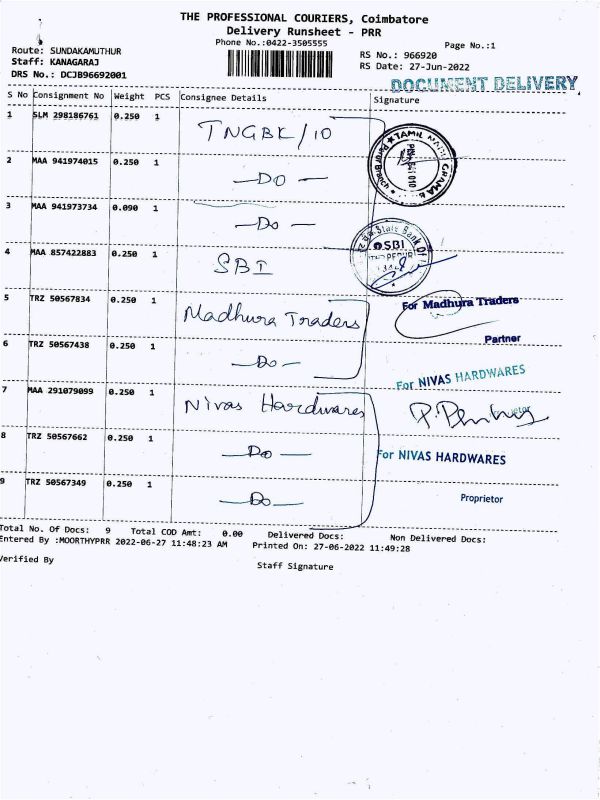 THE PROFESSIONAL COURIERS, Coimbatore
Delivery Runsheet - PRR
Phone No.:0422-3505555
Page No.:1
Route: SUNDAKAMUTHUR
Staff: KANAGARAJ
DRS No.: DCJB96692001
RS No.: 966920
RS Date: 27-Jun-2022
DOCUMENT DELIVERY
S No Consignment No Weight PCS Consignee Details Signature
1 SLM 298186761 0.250 1 TNGBK/10
2 MAA 941974015 0.250 1 —DO—
3 MAA 941973734 0.090 1 —Do—
4 MAA 857422883 0.250 1 SBI
SBI
5 TRZ 50567834 0.250 1 Madhura Traders
For Madhura Traders
Partner
6 TRZ 50567438 0.250 1 —Do—
For NIVAS HARDWARES
7 MAA 291079099 0.250 1 Nivas Hardwares
8 TRZ 50567662 0.250 1 —Do—
For NIVAS HARDWARES
9 TRZ 50567349 0.250 1 —Do—
Proprietor
Total No. Of Docs: 9 Total COD Amt: 0.00 Delivered Docs: Non Delivered Docs:
Entered By :MOORTHYPRR 2022-06-27 11:48:23 AM Printed On: 27-06-2022 11:49:28
Verified By
Staff Signature